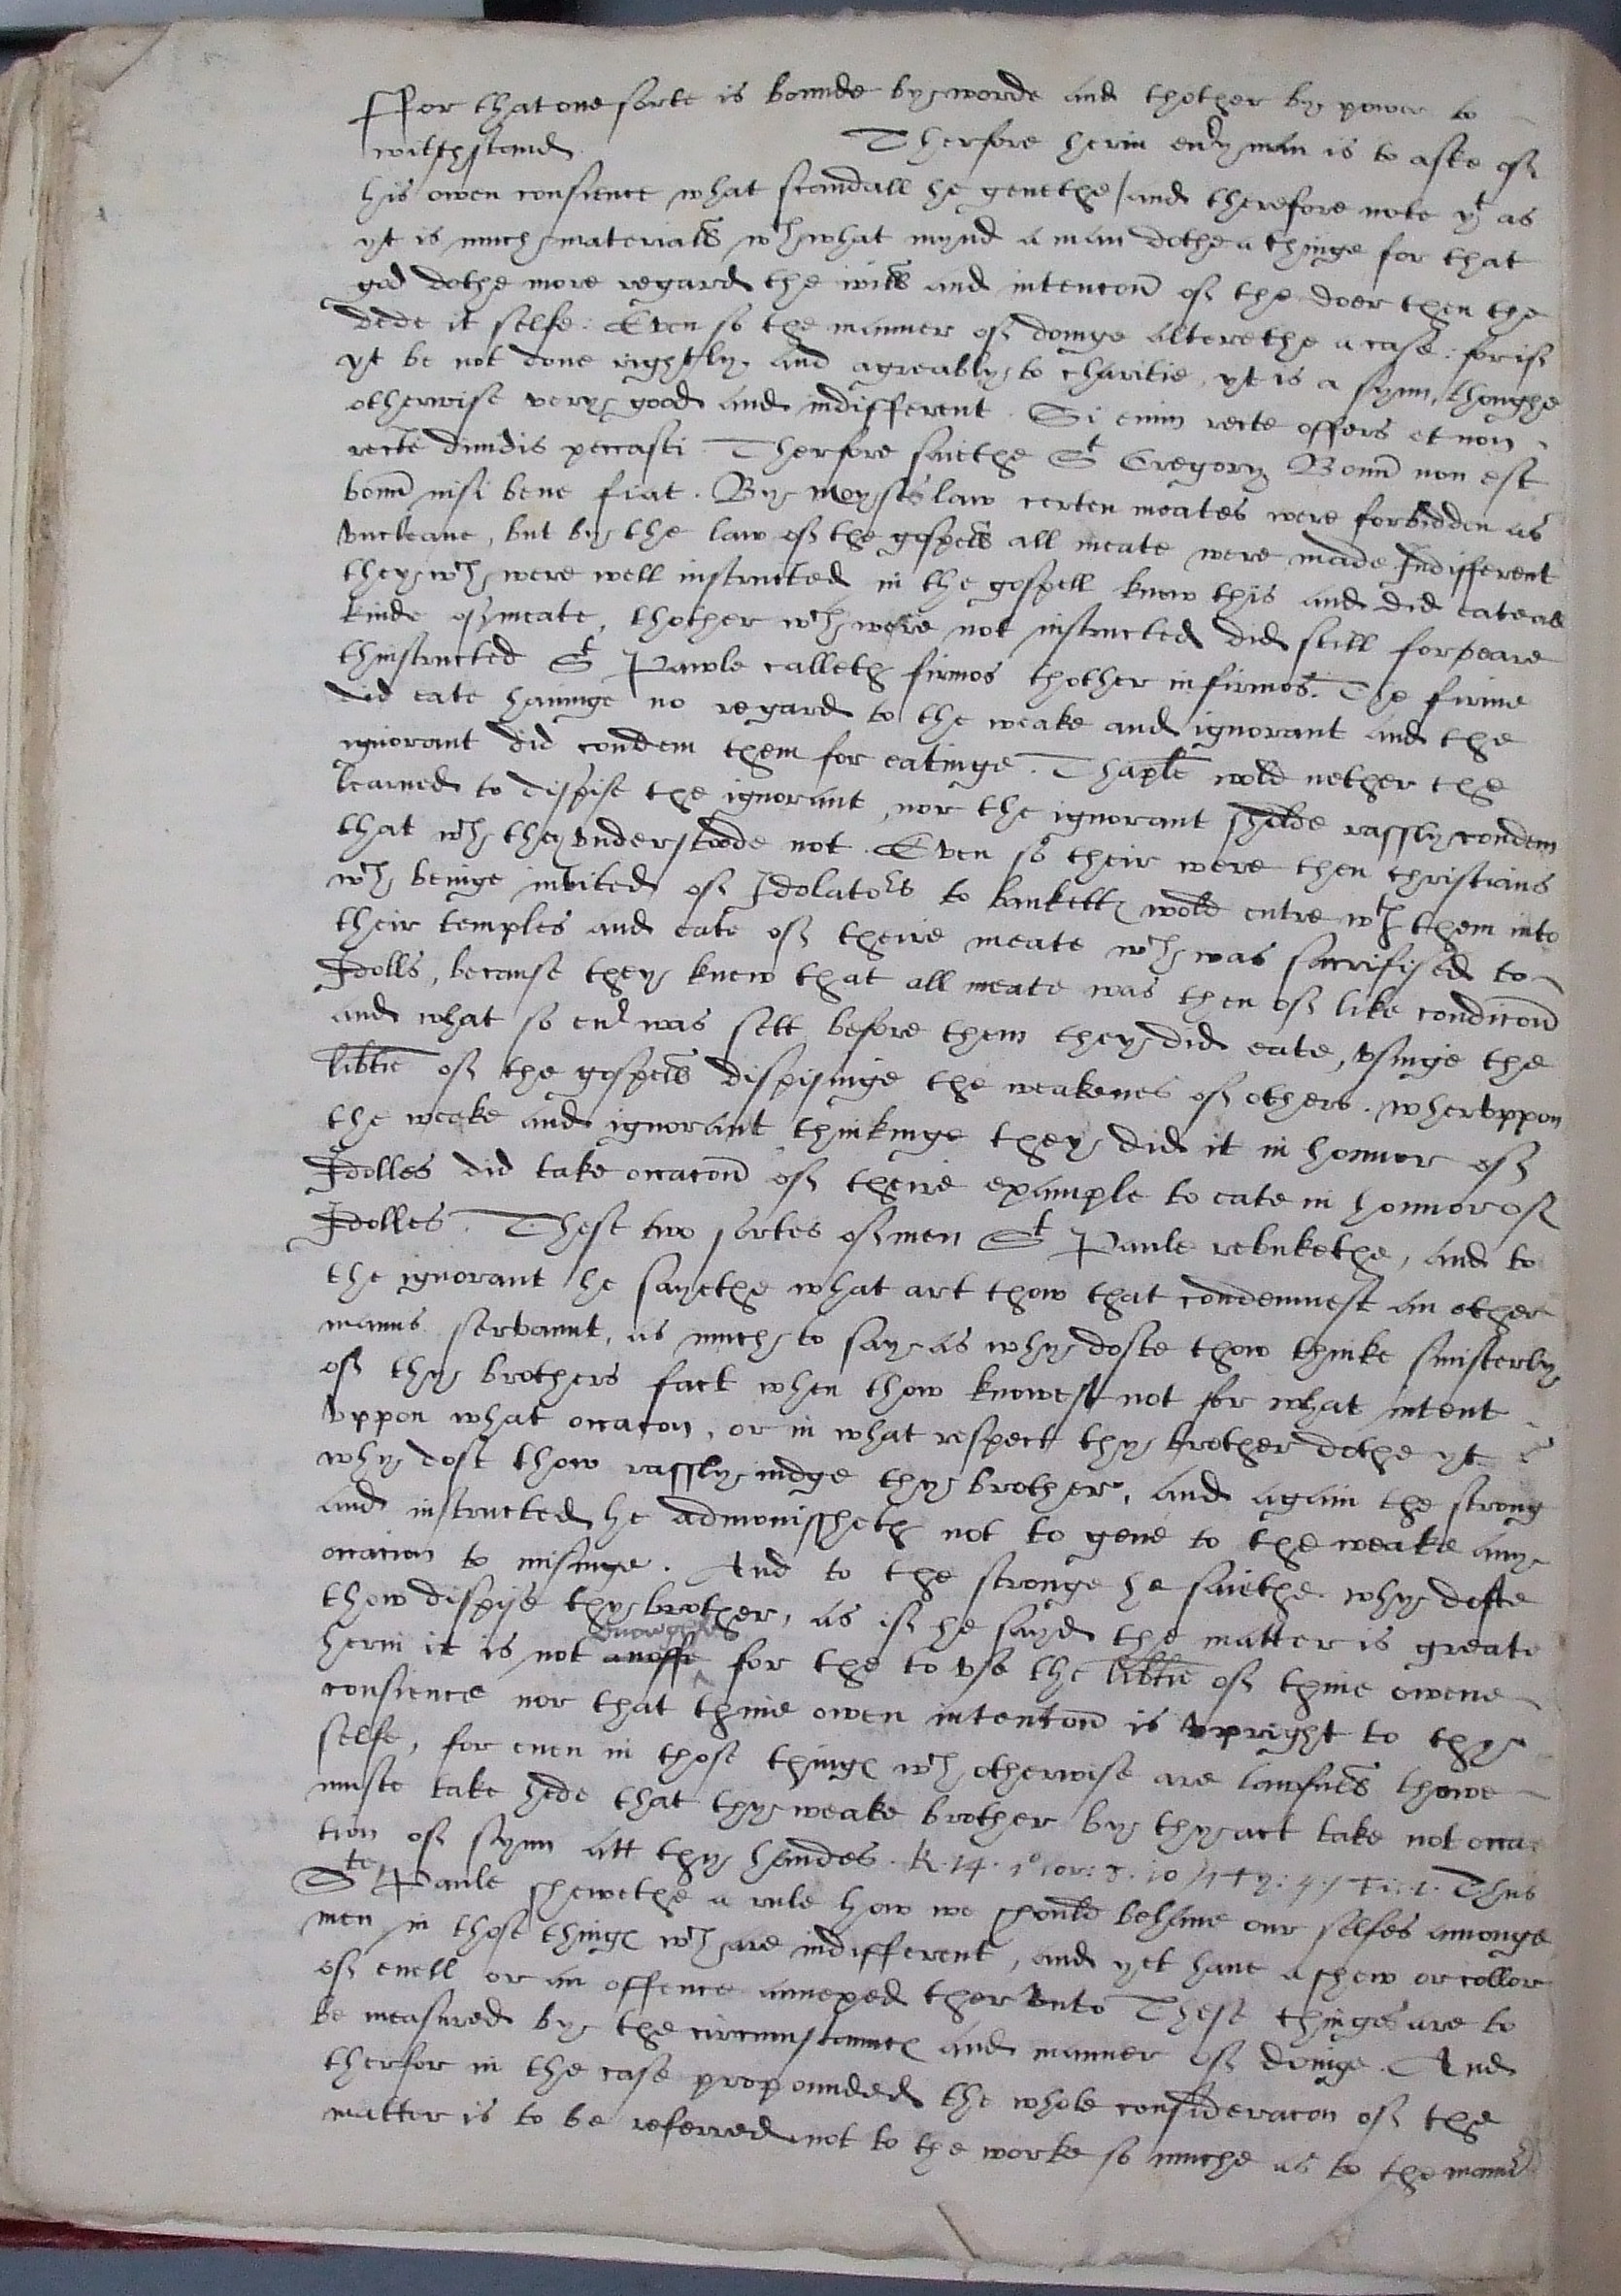 For that one sorte is bounde by worde and thother by power to
withstand. Therfore herin eũy man is to aske of
his owen consience what scandall he geuethe / and therefore note yt as
yt is much materiall wth what mynd a man dothe a thinge for that
god dothe more regard the will and intencon of the doer then the
dede it selfe. Even so the manner of doinge alterethe a case: for if
yt be not done rightly and agreably to charitie, yt is a synn, thoughe
otherwise very good and indifferent. Si enim recte offers et non
recte diuidis peccasti. Therfore saiethe St Gregory Bonū non est
bonū nisi bene fiat. By moyses law certen meates were forbidden as
vncleane, but by the law of the gospell all meate were made Indifferent
they wch were well instructed in the gospell knew this and did eate all
kinde of meate, thother wch were not instructed did still forbeare
thinstructed St Pawle calleth firmos thother infirmos. The firme
did eate hauinge no regard to the weake and ignorant and the
ignorant did condem them for eatinge. Thaple wold nether the
learned to dispise the ignorant, nor the ignorant shulde rassly condem
that wch they vnderstoode not. Even so their were then christians
wch beinge invited of Idolators to bankett wold entre wth them into
their temples and eate of theire meate wch was sacrifised to
Idolls, because they knew that all meate was then of like condicon
and what so eũ was sett before them they did eate, vsinge the
libtie of the gospell dispisinge the weakenes of others. wheruppon
the weake and ignorant thinkinge they did it in honnor of
Idolles did take occacon of theire example to eate in honnor of
Idolles. These two sortes of men St Paule rebukethe, and to
the ignorant he sayethe what art thow that condemnest an other
manns servannt, as much to say as why doste thow thinke sinisterly
of thy brothers fact when thow knowest not for what intent
vppon what occacon, or in what respect thy brother dothe yt
why dost thow rassly iudge thy brother, and again the strong
and instructed he admonissheth not to geue to the weake any
occacion to misiuge. And to the stronge he saiethe why doste
thow dispise thy brother, as if he sayd the matter is greate
herin it is not anoffe ^ enowghe for the to vse the libtie of thine owene
consience nor that thine owen intencon is vpright to thy
selfe, for euen in those things wch otherwise are lawfull thowe
muste take hede that thy weake brother by thy act take not occa
tion of synn att thy handes. R. 14. 1o cor: 8. 10 / 1 Ty: 4. / Ti: 1. Thus
Ste Paule shewethe a rule how we should behaue our selfes amonge
men in those things wch are indifferent, and yet haue a shew or collor
of euell or an offence annexed ther vnto These thinges are to
be measured by the circumstannces and manner of doinge. And
therfor in the case propounded the whole consideracon of the
matter is to be referred not to the worke so muche as to the mannr